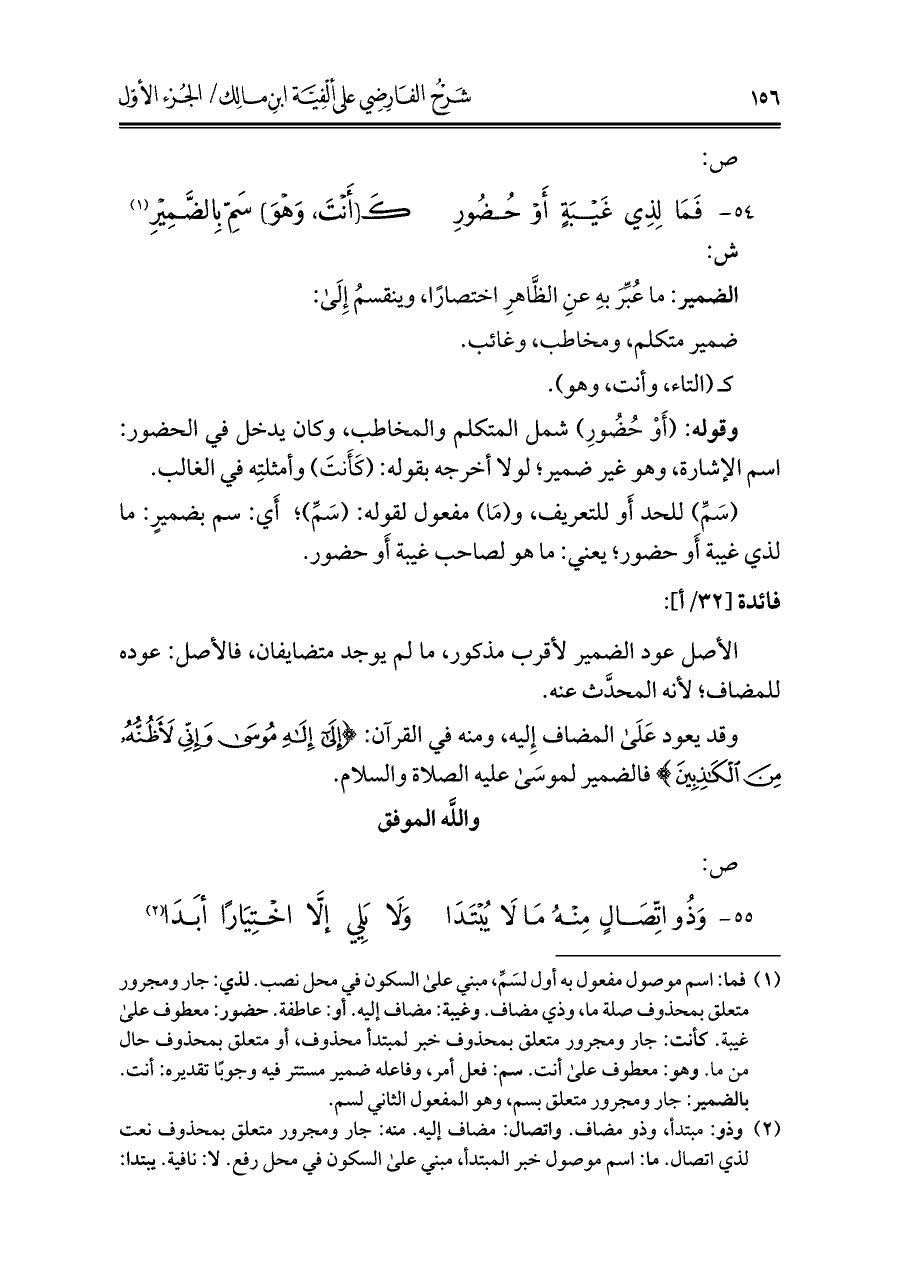 ١٥٦ شَرْحُ الفَارِضِي عَلى أَلْفِيَّة ابْنِ مَالِك/ الجُزء الأوّل
ص:
٥٤- فَمَا لِذِي غَيْبَةٍ أَوْ حُضُورِ كَـ(أَنْتَ، وَهْوَ) سَمِّ بِالضَّمِيْرِ(١)
ش:
الضمير: ما عُبِّرَ بهِ عنِ الظَّاهرِ اختصارًا، وينقسمُ إِلَىٰ:
ضمير متكلم، ومخاطب، وغائب.
كـ (التاء، وأنت، وهو).
وقوله: (أَوْ حُضُورِ) شمل المتكلم والمخاطب، وكان يدخل في الحضور:
اسم الإشارة، وهو غير ضمير؛ لولا أخرجه بقوله: (كَأَنتَ) وأمثلتِه في الغالب.
(سَمِّ) للحد أو للتعريف، و(مَا) مفعول لقوله: (سَمِّ)؛ أَي: سم بضميرٍ: ما
لذي غيبة أَو حضور؛ يعني: ما هو لصاحب غيبة أَو حضور.
فائدة [٣٢/ أ]:
الأصل عود الضمير لأقرب مذكور، ما لم يوجد متضايفان، فالأصل: عوده
للمضاف؛ لأنه المحدَّث عنه.
وقد يعود عَلَىٰ المضاف إليه، ومنه في القرآن: ﴿إِلَىٰٓ إِلَٰهِ مُوسَىٰ وَإِنِّي لَأَظُنُّهُۥ
مِنَ ٱلْكَٰذِبِينَ﴾ فالضمير لموسَىٰ عليه الصلاة والسلام.
واللَّه الموفق
ص:
٥٥- وَذُو اتِّصَالٍ مِنْهُ مَا لَا يُبْتَدَا وَلَا يَلِي إِلَّا اخْتِيَارًا أَبَدَا(٢)
(١) فما: اسم موصول مفعول به أول لسَمِّ، مبني علىٰ السكون في محل نصب. لذي: جار ومجرور
متعلق بمحذوف صلة ما، وذي مضاف. وغيبة: مضاف إليه. أو: عاطفة. حضور: معطوف علىٰ
غيبة. كأنت: جار ومجرور متعلق بمحذوف خبر لمبتدأ محذوف، أو متعلق بمحذوف حال
من ما. وهو: معطوف علىٰ أنت. سم: فعل أمر، وفاعله ضمير مستتر فيه وجوبًا تقديره: أنت.
بالضمير: جار ومجرور متعلق بسم، وهو المفعول الثاني لسم.
(٢) وذو: مبتدأ، وذو مضاف. واتصال: مضاف إليه. منه: جار ومجرور متعلق بمحذوف نعت
لذي اتصال. ما: اسم موصول خبر المبتدأ، مبني علىٰ السكون في محل رفع. لا: نافية. يبتدا: